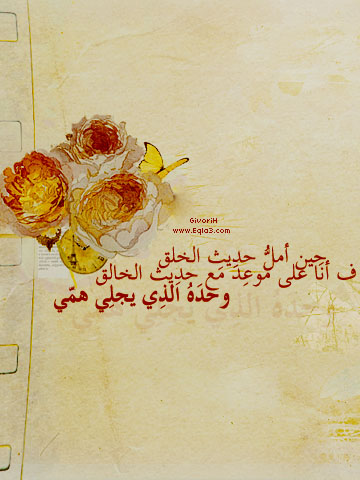 GivoriH
www.Eqla3.com
حين أملُّ حديث الخلق
ف أنَا على موعِدَ مَع حديث الخالق
وحدَهُ الَّذِي يجلِي همّي